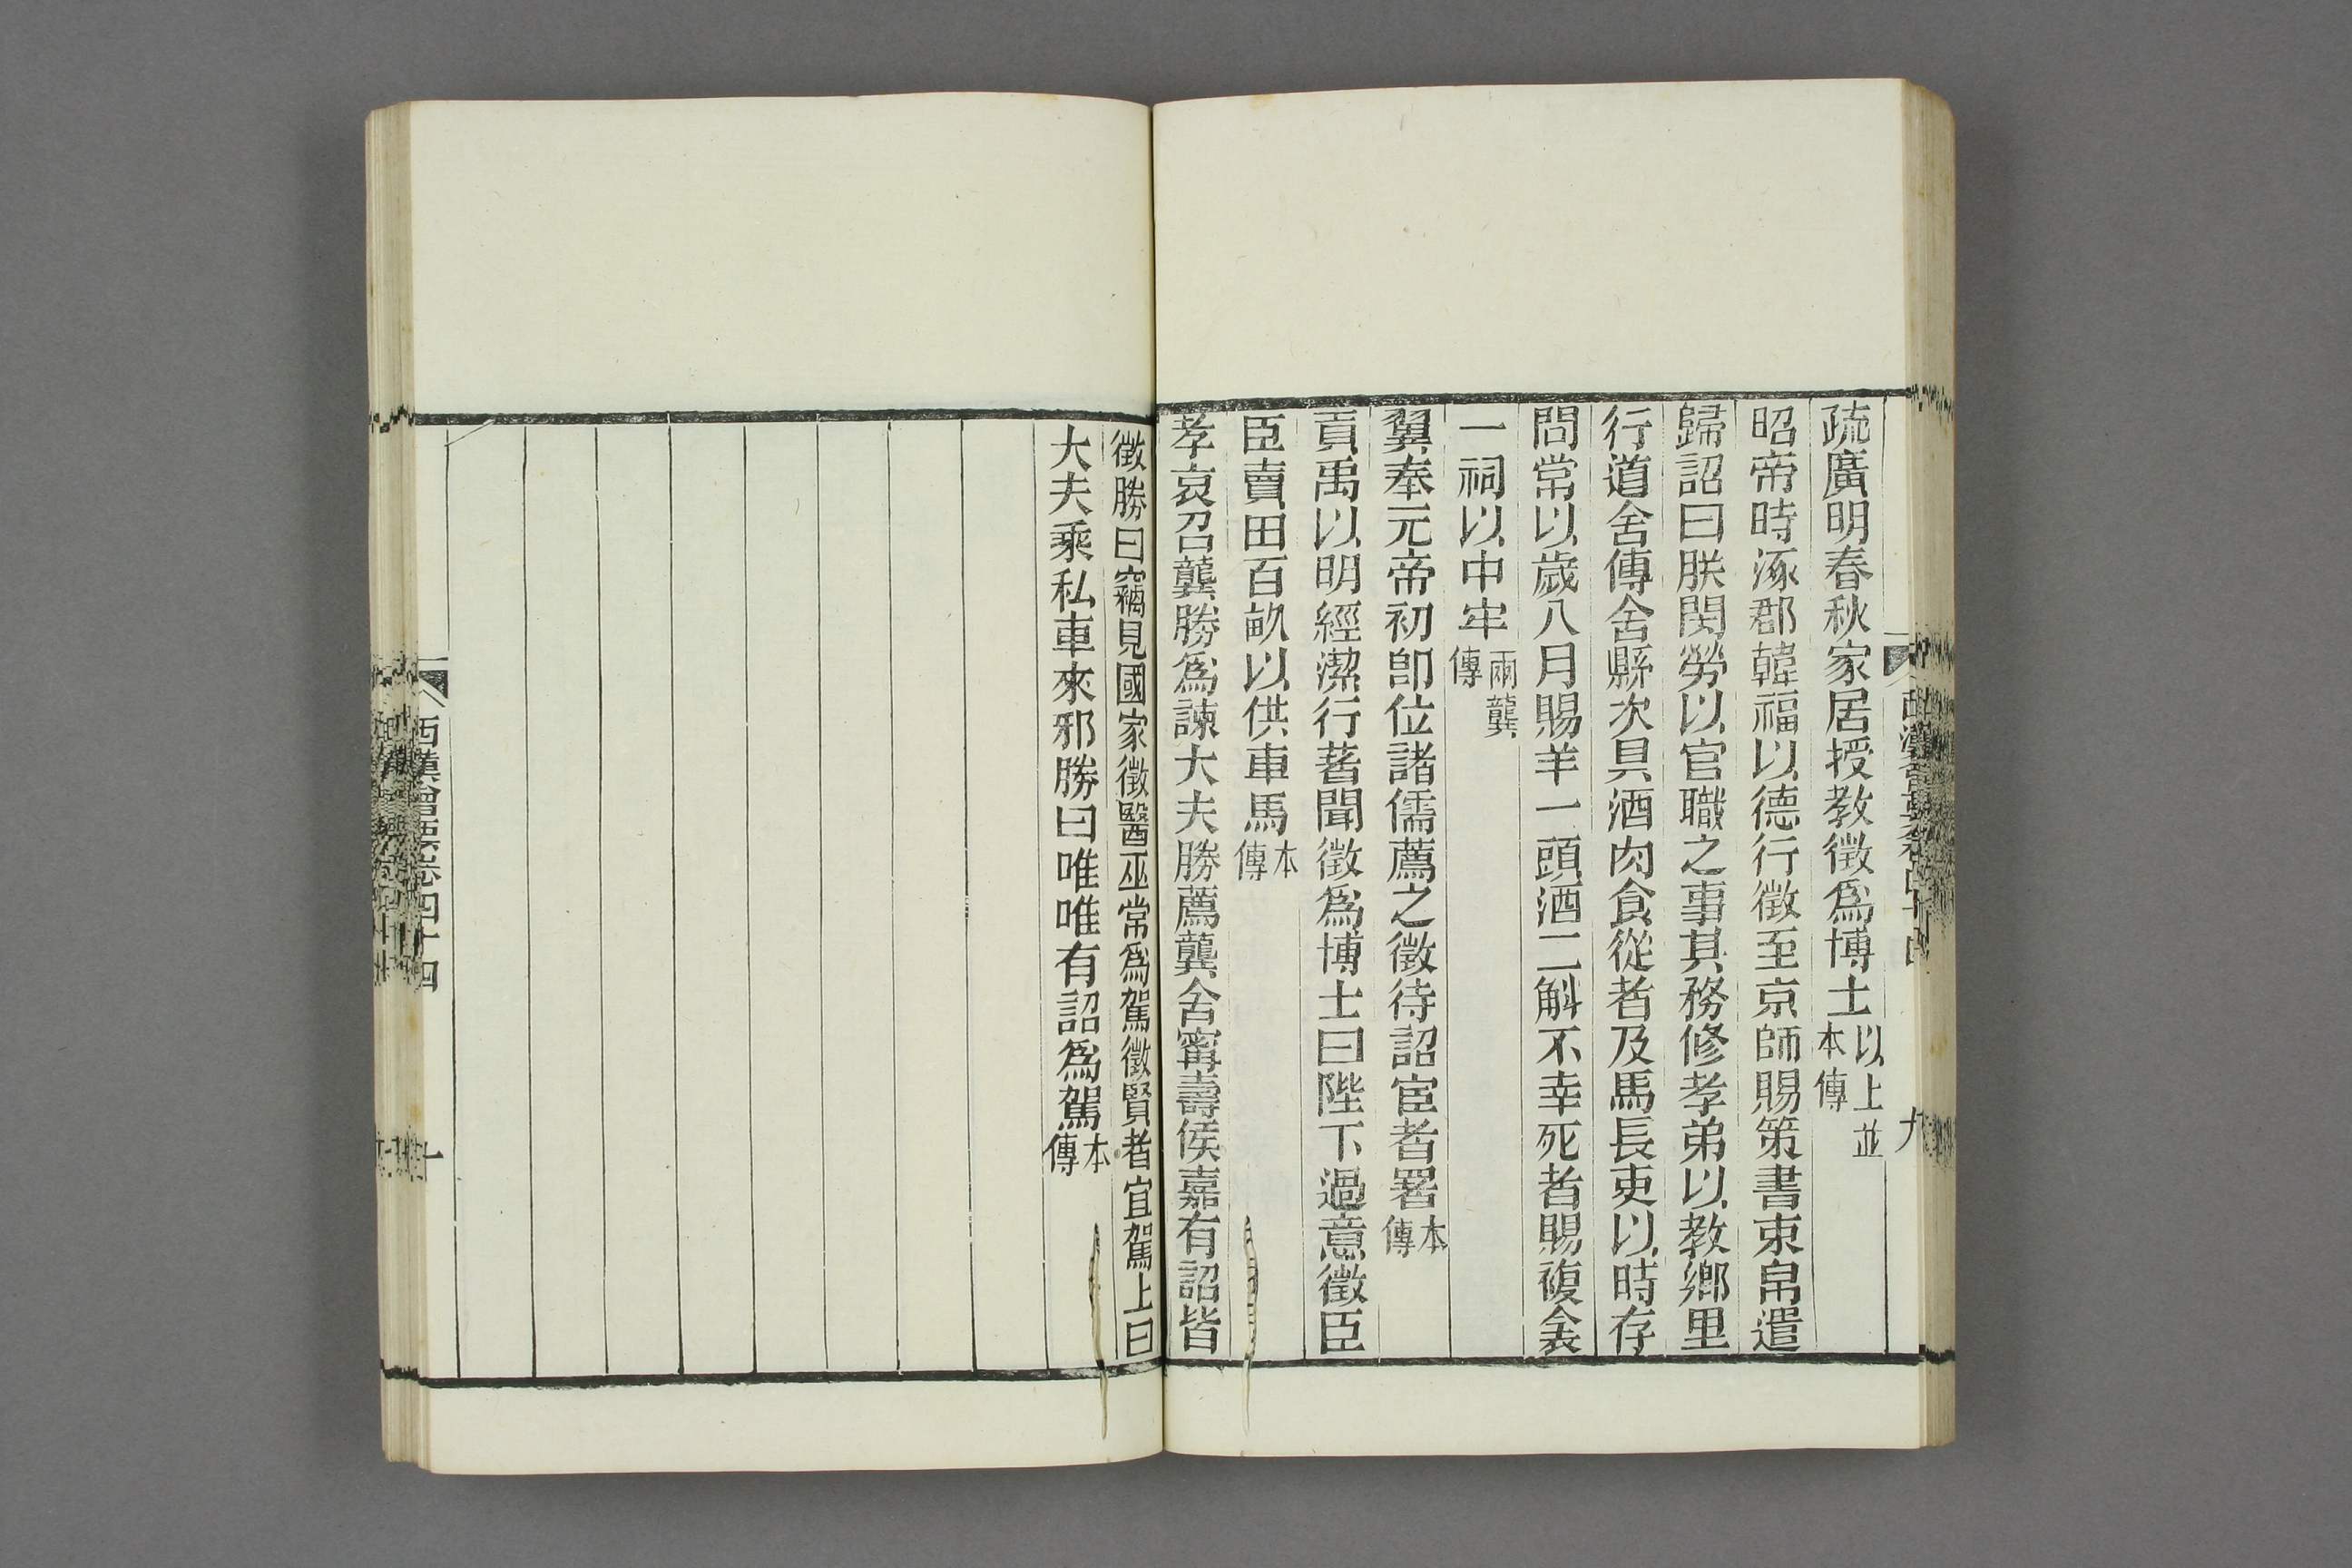 疏廣明春秋家居授教徵爲博士以上並本傳
昭帝時涿郡韓福以德行徵至京師賜策書束帛遣
歸詔曰朕閔勞以官職之事其務修孝弟以教鄉里
行道舍傳舍縣次具酒肉食從者及馬長吏以時存
問常以歲八月賜羊一頭酒二斛不幸死者賜複衾
一祠以中牢兩龔傳
翼奉元帝初卽位諸儒薦之徵待詔宦者署本傳
貢禹以明經潔行著聞徵爲博士曰陛下過意徵臣
臣賣田百畝以供車馬本傳
孝哀召龔勝爲諫大夫勝薦龔舍甯壽侯嘉有詔皆
徵勝曰竊見國家徵醫巫常爲駕徵賢者宜駕上曰
大夫乘私車來邪勝曰唯唯有詔爲駕本傳
西漢會要卷四十四
九
西漢會要卷四十四
十